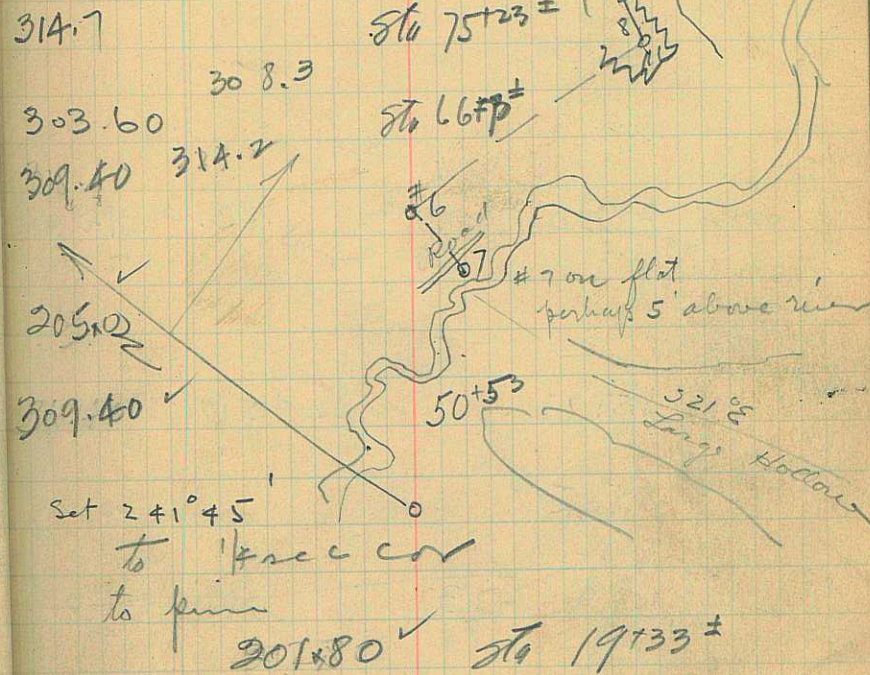 314.7 Sta 75+23 ±
8
308.3
303.60
309.40 314.2
#6
Road
7
#7 on flat
perhaps 5' above river
309.40 ✓
50+53
Large Hollow
Set 241°45'
to 1/4 sec cor
to pine
201.80 ✓ Sta 19+33 ±